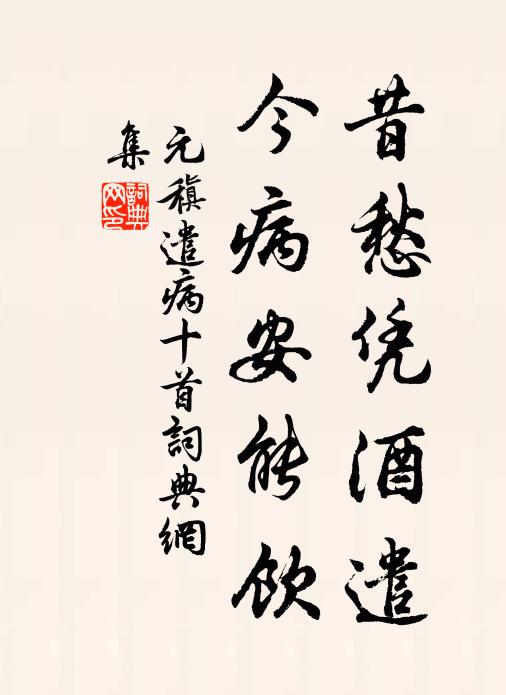 昔愁凭酒遣
今病安能飲
元稹遣病十首詞典網
集
詞典
网印